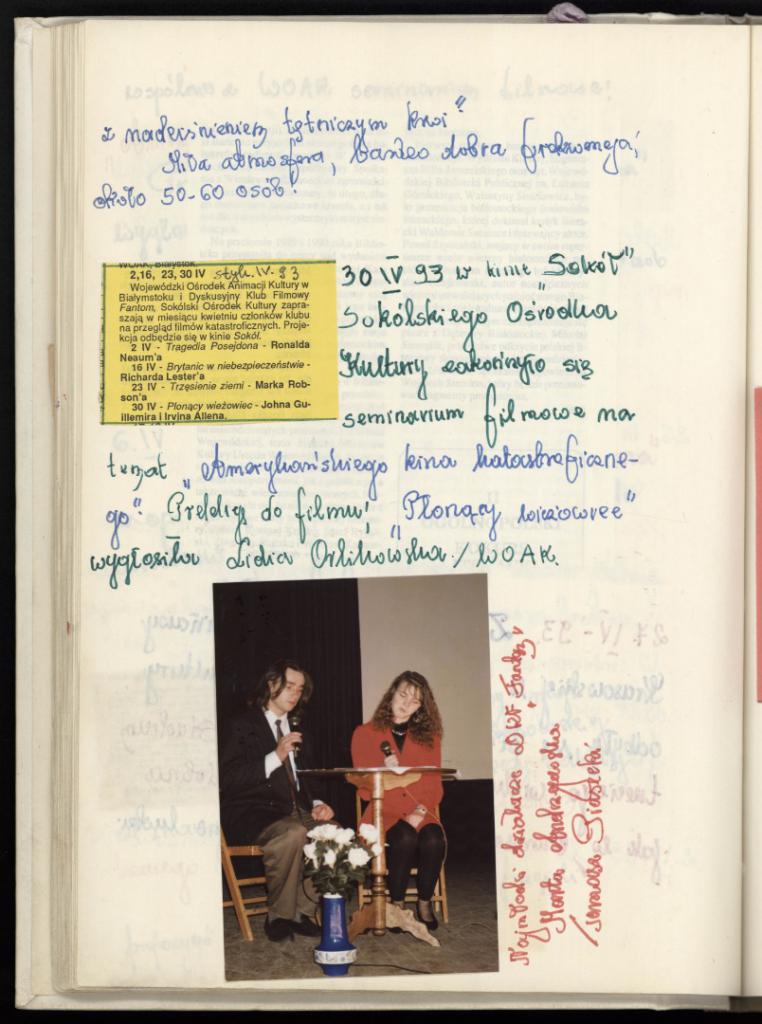 z nadciśnieniem tętniczym krwi"
Miła atmosfera, bardzo dobra frekwencja,
około 50-60 osób!
WOAK, Białystok
2,16, 23, 30 IV
Wojewódzki Ośrodek Animacji Kultury w
Białymstoku i Dyskusyjny Klub Filmowy
Fantom, Sokólski Ośrodek Kultury zapra-
szają w miesiącu kwietniu członków klubu
na przegląd filmów katastroficznych. Proje-
kcja odbędzie się w kinie Sokół.
2 IV - Tragedia Posejdona - Ronalda
Neaum'a
16 IV - Brytanic w niebezpieczeństwie -
Richarda Lester'a
23 IV - Trzęsienie ziemi - Marka Rob-
son'a
30 IV - Płonący wieżowiec - Johna Gu-
illemira i Irvina Allena.
30 IV 93 w kinie „Sokół"
Sokólskiego Ośrodka
Kultury zakończyło się
seminarium filmowe na
temat „Amerykańskiego kina katastroficzne-
go". Prelekcję do filmu! „Płonący wieżowiec"
wygłosiła Lidia Orlikowska / WOAK.
Najmłodsi działacze DKF „Fantom"
Marta